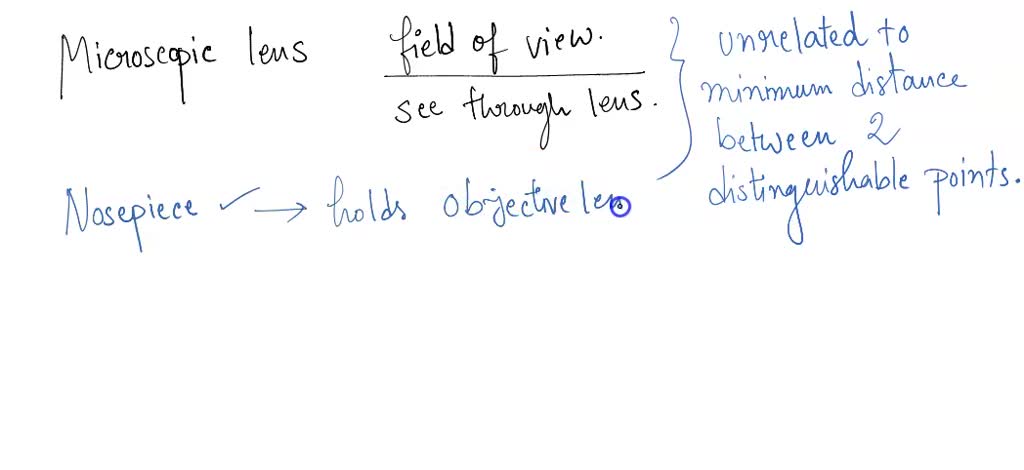 Microscopic lens
field of view.
see through lens.
unrelated to
minimum distance
between 2
distinguishable points.
Nosepiece ✓ → holds objective len